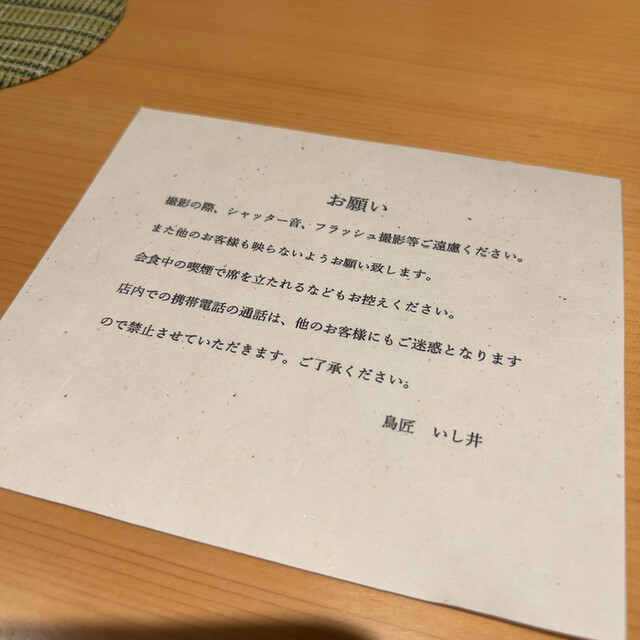 お願い
撮影の際、シャッター音、フラッシュ撮影等ご遠慮ください。
また他のお客様も映らないようお願い致します。
会食中の喫煙で席を立たれるなどもお控えください。
店内での携帯電話の通話は、他のお客様にもご迷惑となります
ので禁止させていただきます。ご了承ください。
鳥匠　いし井